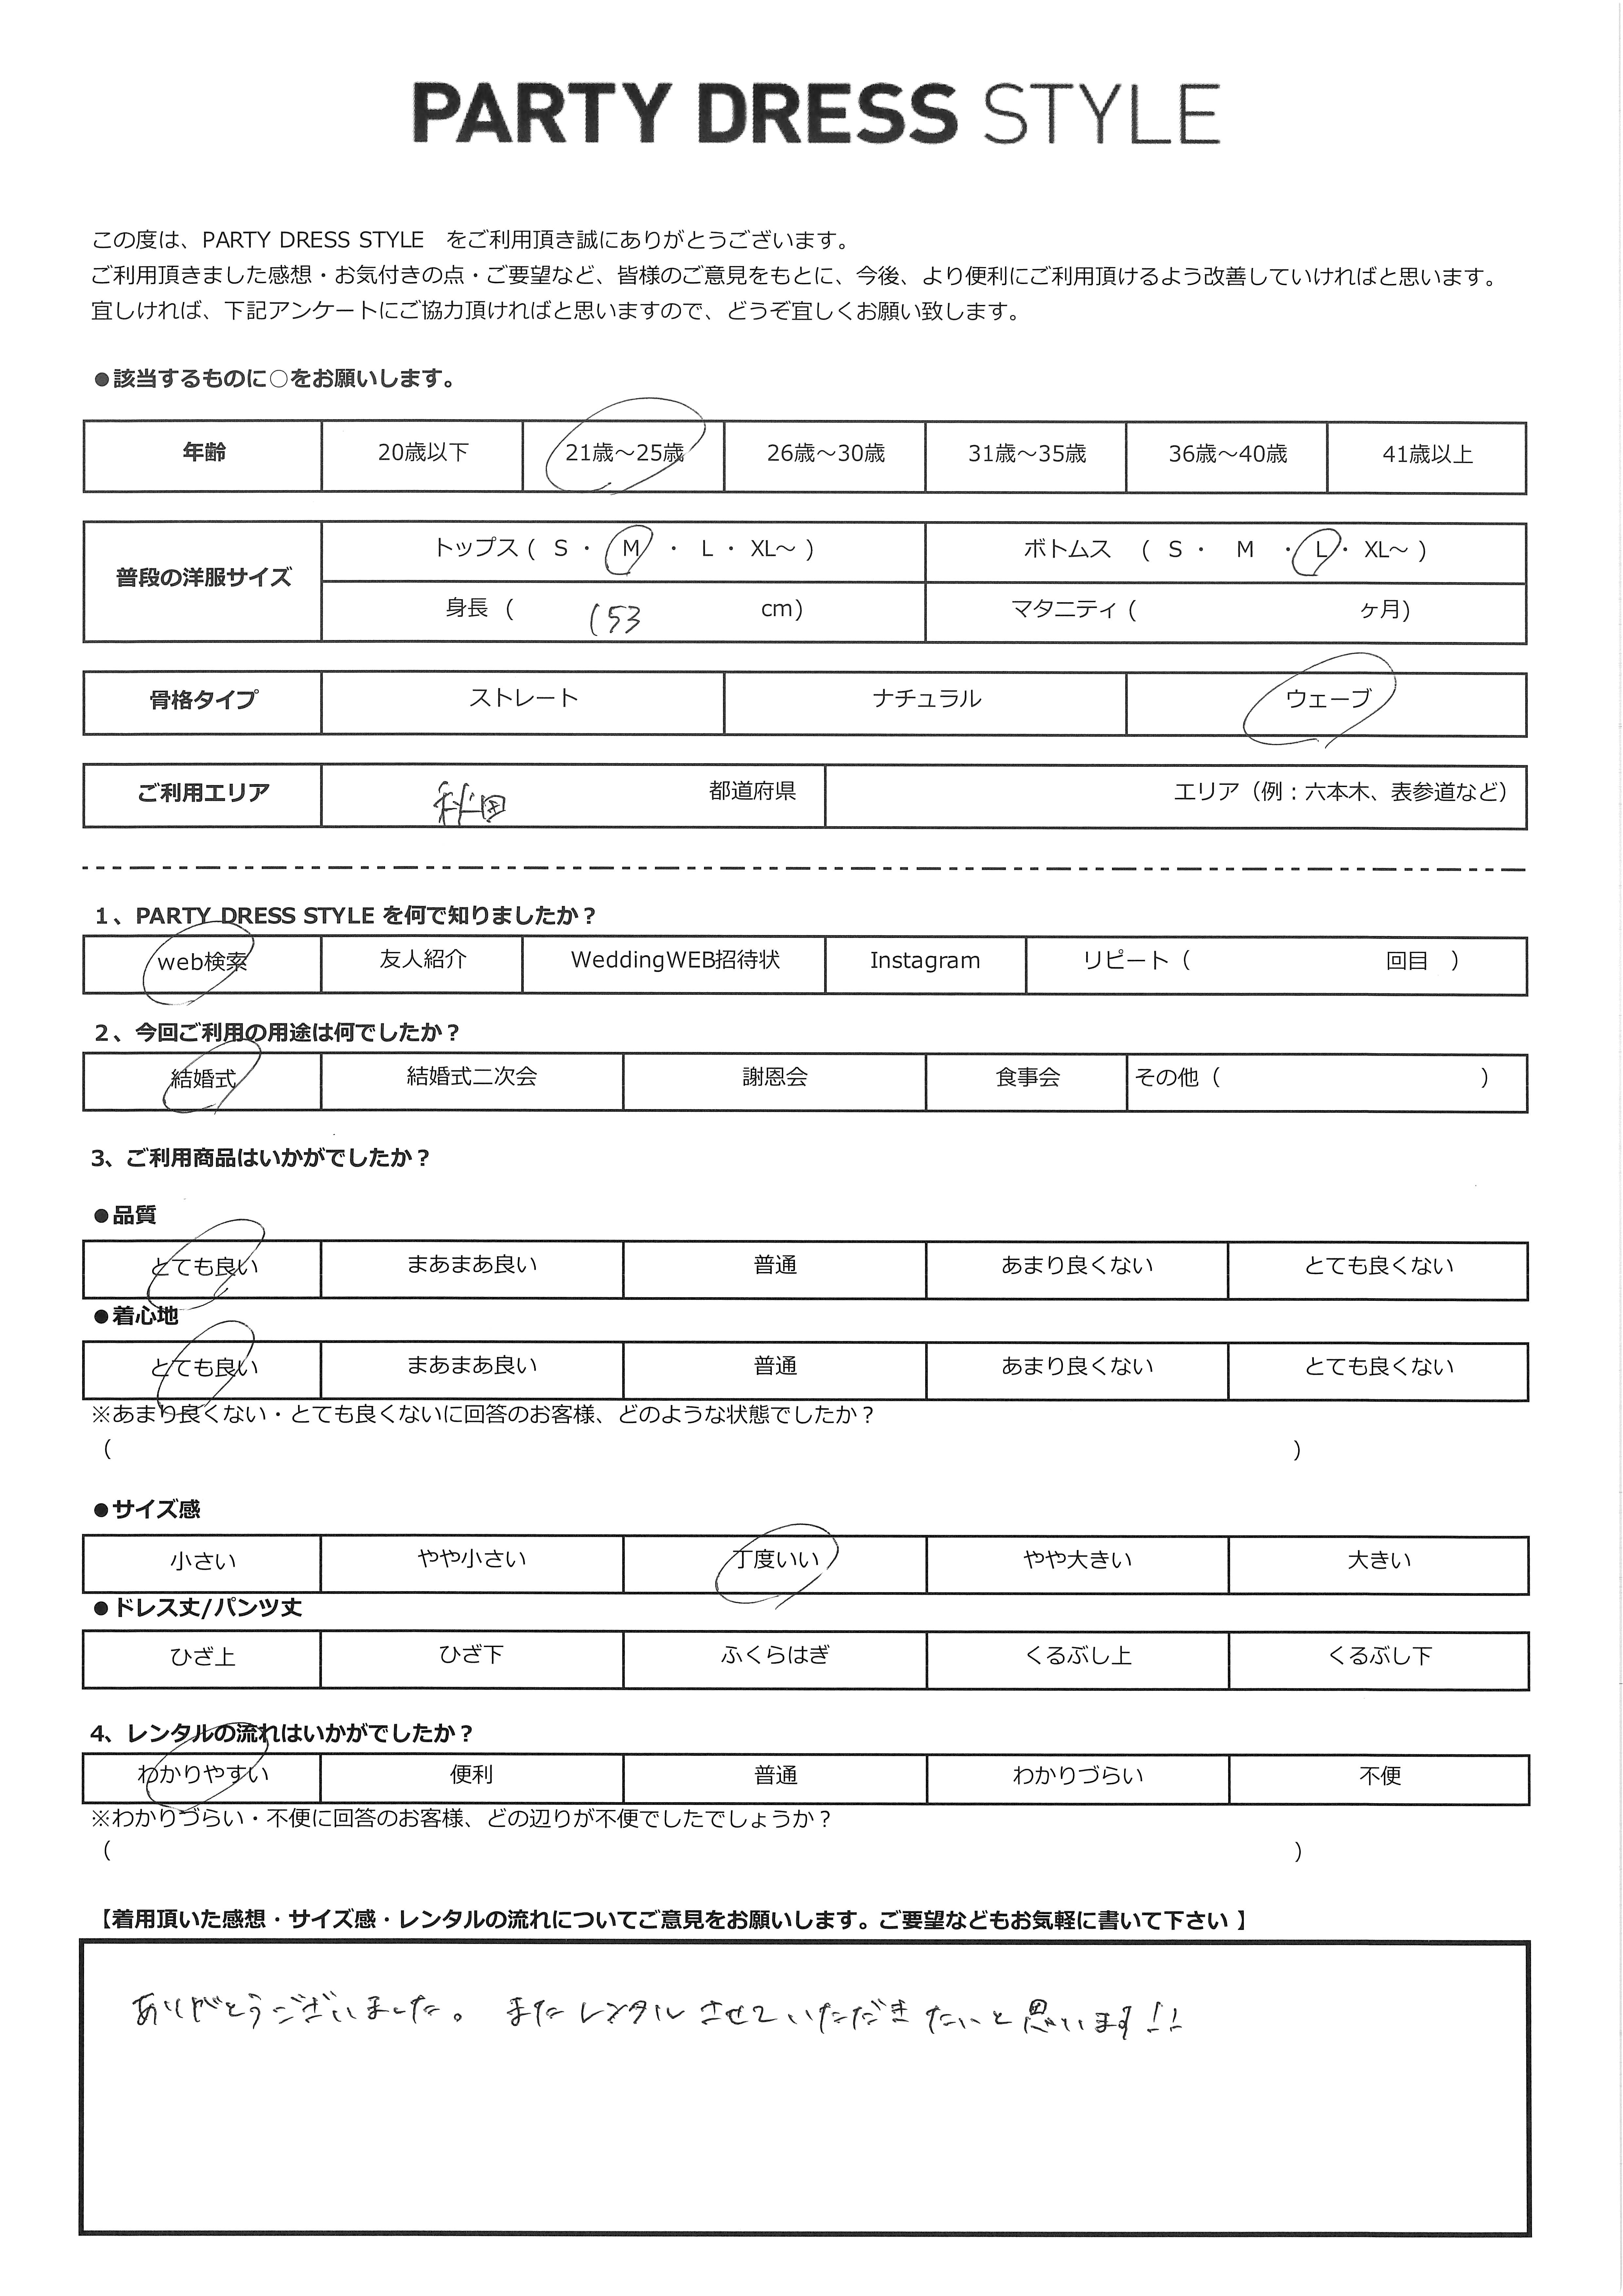 PARTY DRESS STYLE
この度は、PARTY DRESS STYLE　をご利用頂き誠にありがとうございます。
ご利用頂きました感想・お気付きの点・ご要望など、皆様のご意見をもとに、今後、より便利にご利用頂けるよう改善していければと思います。
宜しければ、下記アンケートにご協力頂ければと思いますので、どうぞ宜しくお願い致します。
●該当するものに○をお願いします。
年齢 20歳以下 21歳～25歳 26歳～30歳 31歳～35歳 36歳～40歳 41歳以上
普段の洋服サイズ
トップス ( S ・ M ・ L ・ XL～ ) ボトムス ( S ・ M ・ L ・ XL～ )
身長 ( 153 cm) マタニティ ( ヶ月)
骨格タイプ ストレート ナチュラル ウェーブ
ご利用エリア 秋田 都道府県 エリア（例：六本木、表参道など）
1、PARTY DRESS STYLE を何で知りましたか？
web検索 友人紹介 WeddingWEB招待状 Instagram リピート（ 回目 ）
2、今回ご利用の用途は何でしたか？
結婚式 結婚式二次会 謝恩会 食事会 その他（ ）
3、ご利用商品はいかがでしたか？
●品質
とても良い まあまあ良い 普通 あまり良くない とても良くない
●着心地
とても良い まあまあ良い 普通 あまり良くない とても良くない
※あまり良くない・とても良くないに回答のお客様、どのような状態でしたか？
（ ）
●サイズ感
小さい やや小さい 丁度いい やや大きい 大きい
●ドレス丈/パンツ丈
ひざ上 ひざ下 ふくらはぎ くるぶし上 くるぶし下
4、レンタルの流れはいかがでしたか？
わかりやすい 便利 普通 わかりづらい 不便
※わかりづらい・不便に回答のお客様、どの辺りが不便でしたでしょうか？
（ ）
【着用頂いた感想・サイズ感・レンタルの流れについてご意見をお願いします。ご要望などもお気軽に書いて下さい 】
ありがとうございました。 またレンタルさせていただきたいと思います!!